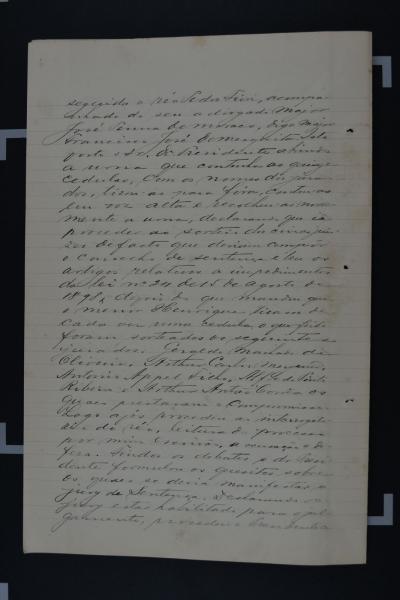 seguido o réo Pedro          , acompa
nhado de seu advogado Major
José Penna de Moraes, digo Major
Francisco José de Mesquita. Isto
posto o Dr. Presidente abrindo
a urna que continha as quinze
cedulas, com os nomes dos jura
dos, tirou-as para fora, contou-as
em voz alta e recolheu-as nova
mente a urna, declarando que ia
proceder ao sorteio dos cinco jui
zes de facto que deviam compôr
o conselho de sentença e leu os
artigos relativos a impedimentos
da lei nº 24 de 15 de Agosto de
1898, depois do que mandou que
o menor Henrique           de
cada vez uma cedula, o que feito
foram sorteados os seguintes
jurados: Geraldo          de
Oliveira, Arthur
Antonio          Filho,
Ribeiro e Arthur          os
quaes prestaram o compromisso.
Logo após procedeu ao interroga
torio do réo, leitura do processo
por mim Escrivão, accusação e de
fesa. Findos os debates o Dr. Presi
dente formulou os quesitos sobre
os quaes se devia manifestar o
jury de Sentença. Declarando o
jury estar habilitado para o jul
gamento, procedeu o Presidente